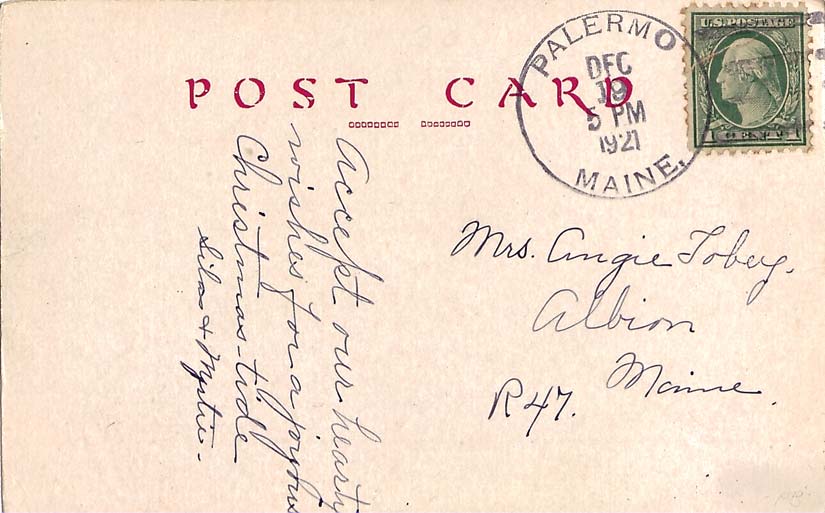 POST CARD
PALERMO
DEC
19
5 PM
1921
MAINE.
U.S. POSTAGE
1 CENT 1
Accept our hearty
wishes for a joyous
Christmas-tide
Silas & Myrtie.
Mrs. Angie Tobey.
Albion
Maine.
R 47.